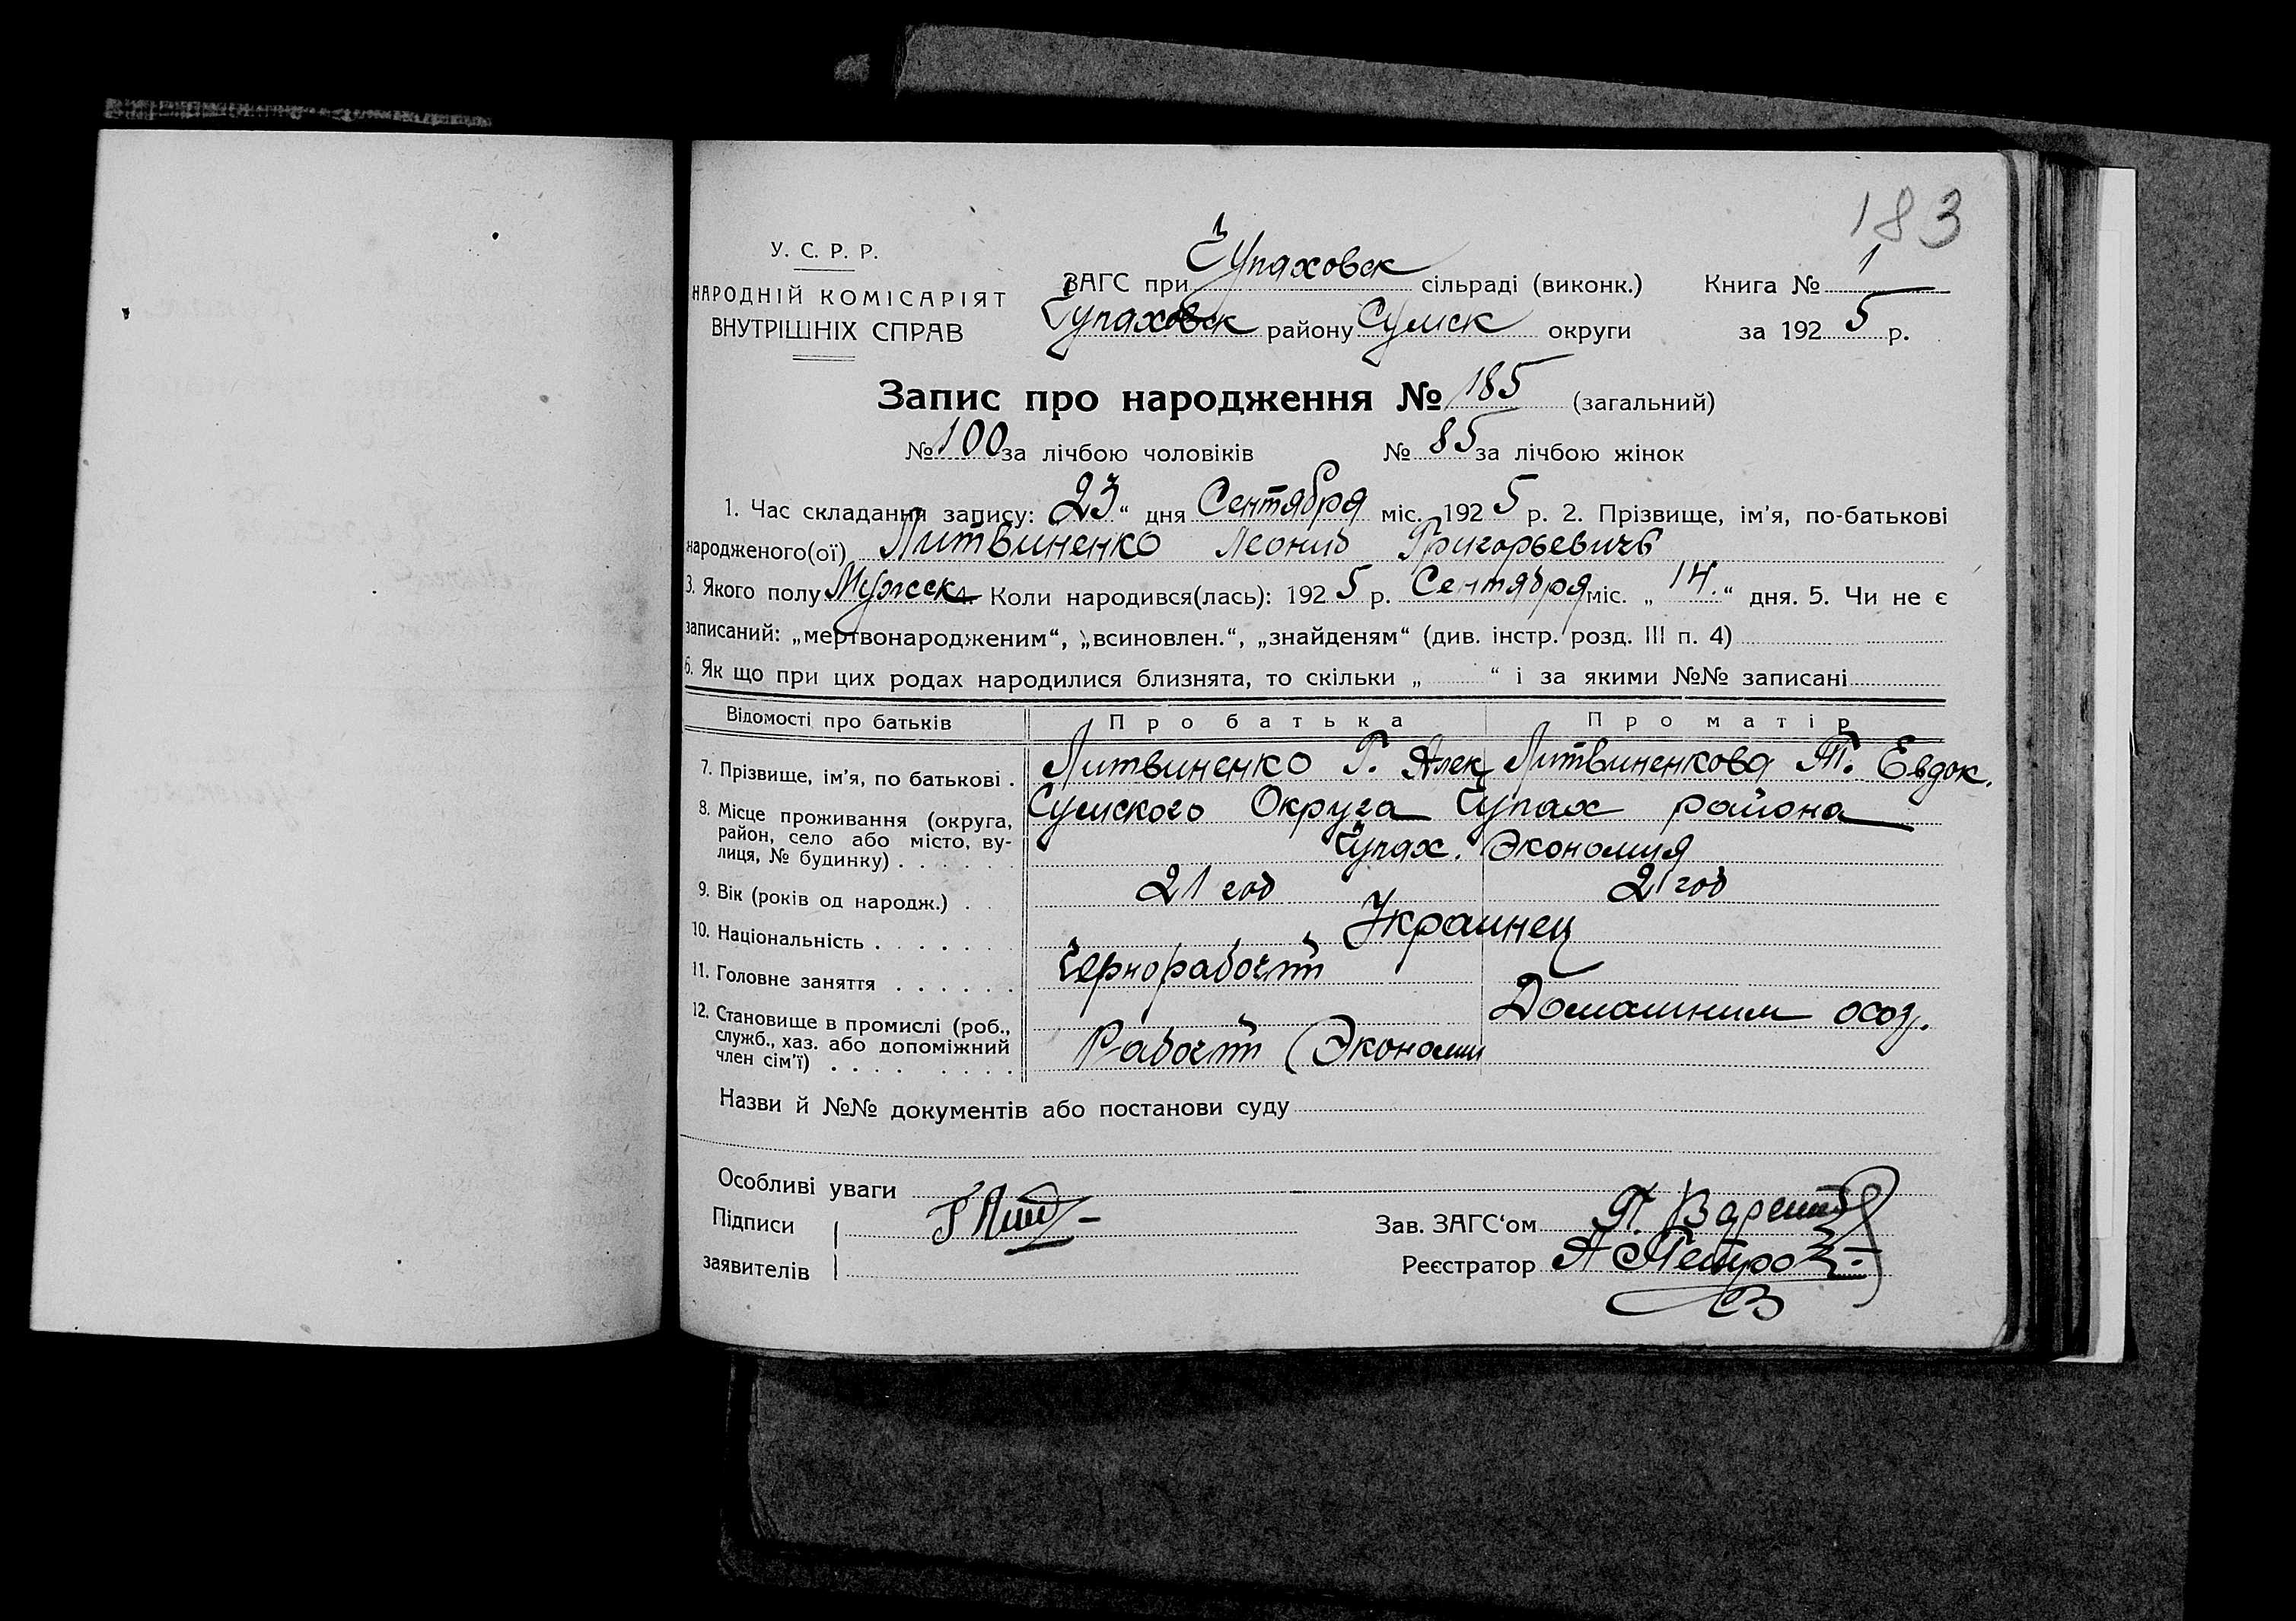 183
У. С. Р. Р.
НАРОДНІЙ КОМІСАРІЯТ
ВНУТРІШНІХ СПРАВ
ЗАГС при Чупаховск сільраді (виконк.) Книга № 1
Чупаховск району Сумск округи за 1925 р.
Запис про народження № 185 (загальний)
№ 100 за лічбою чоловіків № 85 за лічбою жінок
1. Час складання запису: 23 “ дня Сентября міс. 1925 р. 2. Прізвище, ім’я, по-батькові
народженого(ої) Литвиненко Леонид Григорьевичь
3. Якого полу Мужск 4. Коли народився(лась): 1925 р. Сентября міс. „ 14. “ дня. 5. Чи не є
записаний: „мертвонародженим“, „всиновлен.“, „знайденям“ (див. інстр. розд. III п. 4)
6. Як що при цих родах народилися близнята, то скільки „ “ і за якими №№ записані
Відомості про батьків Про батька Про матір
7. Прізвище, ім’я, по батькові . Литвиненко Г. Алек Литвиненкова Т. Евдок.
8. Місце проживання (округа, район, село або місто, вулиця, № будинку) . . . . . Сумского Округа Чупах района
Чупах. Экономия
9. Вік (років од народж.) . . 21 год 21 год
10. Національність . . . . . . . Украинец
11. Головне заняття . . . . . . Чернорабочт
12. Становище в промислі (роб., служб., хаз. або допоміжний член сім’ї) . . . . . . . . Рабочт (Экономии Домашним
Назви й №№ документів або постанови суду
Особливі уваги
Підписи
заявителів
Зав. ЗАГС‘ом П.
Реєстратор А Петро